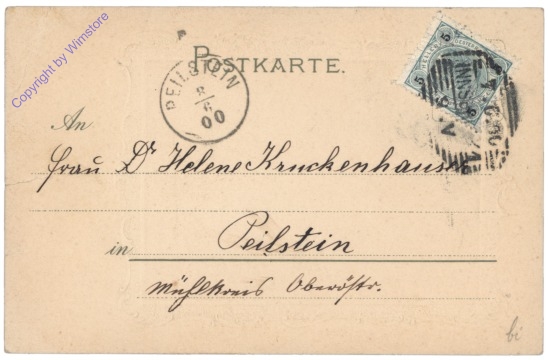 Copyright by Wimstore
POSTKARTE.
PEILSTEIN
8/6
00
5
5
An
Frau Dr Helene Kruckenhauser
in Peilstein
Mühlkreis Oberöstr.
bi